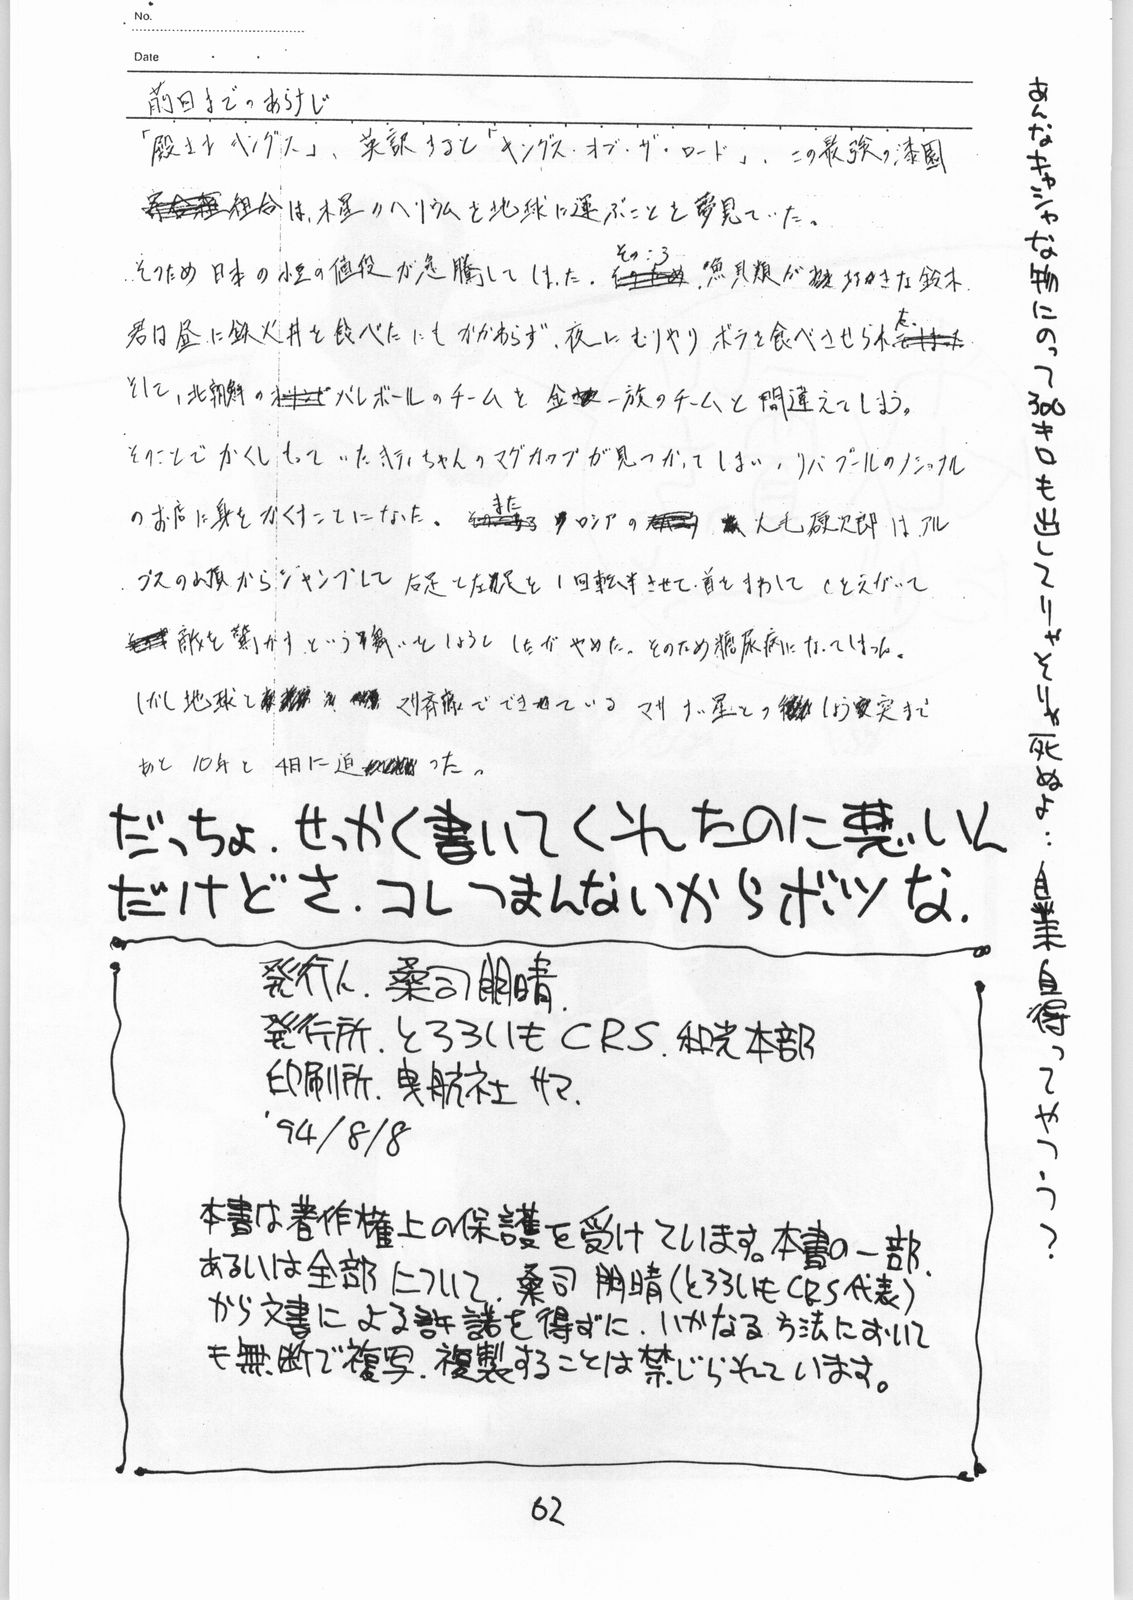 No.
Date
前回までのあらすじ
「殿さまキングス」、英訳すると「キングス・オブ・ザ・ロード」、この最強の漆園
組合は、木星のヘリウムを地球に運ぶことを夢見ていた。
そのため日本の小豆の値段が急騰してしまった。そのころ、魚貝類が好きな鈴木
君は昼に鉄火丼を食べたにもかかわらず、夜にむりやりボラを食べさせられた。
そして、北朝鮮のバレーボールのチームを金一族のチームと間違えてしまう。
そのことでかくしもっていたキティちゃんのマグカップが見つかってしまい、リバプールのナショナル
のお店に身をかくすことになった。また ロシアの 大毛硬次郎はアル
プスの山頂からジャンプして右足と左足を1回転半させて、首をまわして Cをえがいて
敵を驚かすという をしようとしたがやめた。そのため糖尿病になってしまった。
しかし地球と でできている マサオ星との しょう突まで
あと10年と4日に迫った。
だっちょ.せっかく書いてくれたのに悪いん
だけどさ.コレつまんないからボツな.
発行人.桑司朋晴.
発行所.とろろいもCRS.和光本部
印刷所.曳航社サマ.
'94/8/8
本書は著作権上の保護を受けています。本書の一部.
あるいは全部について.桑司朋晴(とろろいもCRS代表)
から文書による許諾を得ずに.いかなる方法において
も無断で複写.複製することは禁じられています。
あんなキャシャな物にのって300キロも出してりゃそりゃ死ぬよ‥自業自得ってやつう?
62